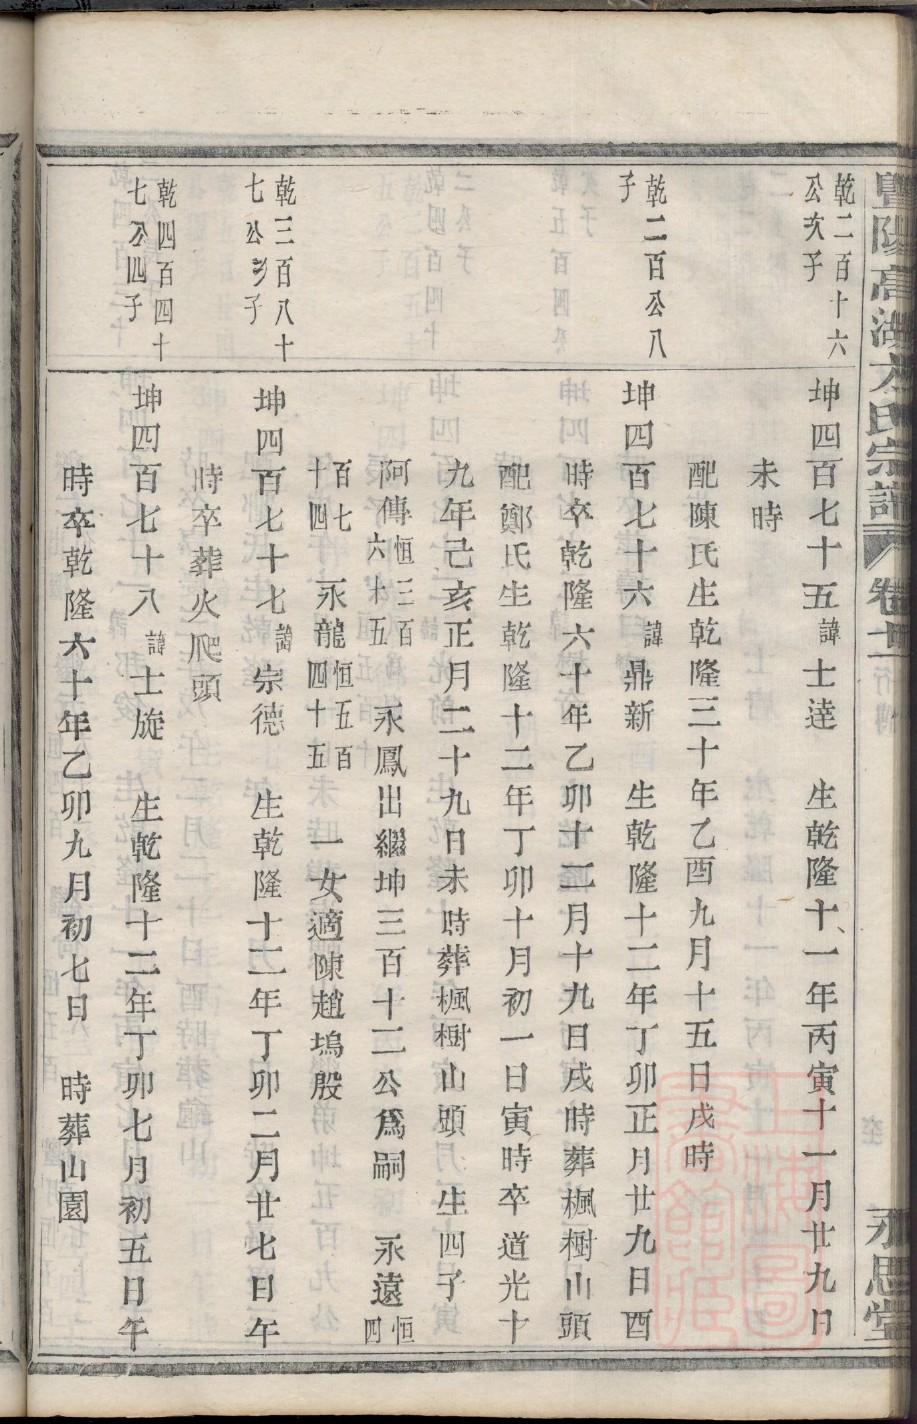 暨陽高湖 氏宗譜 卷
永思堂
乾二百十六
公次子
坤四百七十五諱士逹 生乾隆十一年丙寅十一月廿九日
未時
配陳氏生乾隆三十年乙酉九月十五日戌時
乾二百公八
子
坤四百七十六諱鼎新 生乾隆十二年丁卯正月廿九日酉
時卒乾隆六十年乙卯十二月十九日戌時葬楓樹山頭
配鄭氏生乾隆十二年丁卯十月初一日寅時卒道光十
九年己亥正月二十九日未時葬楓樹山頭 生四子
阿傳恒三百六十五 永鳳出繼坤三百十二公爲嗣 永遠恒四
百七十四 永龍恒五百四十五 一女適陳趙塢殷
乾三百八十
七公 子
坤四百七十七諱宗德 生乾隆十二年丁卯二月廿七日午
時卒葬火爬頭
乾四百四十
七公四子
坤四百七十八諱士旋 生乾隆十二年丁卯七月初五日午
時卒乾隆六十年乙卯九月初七日 時葬山園